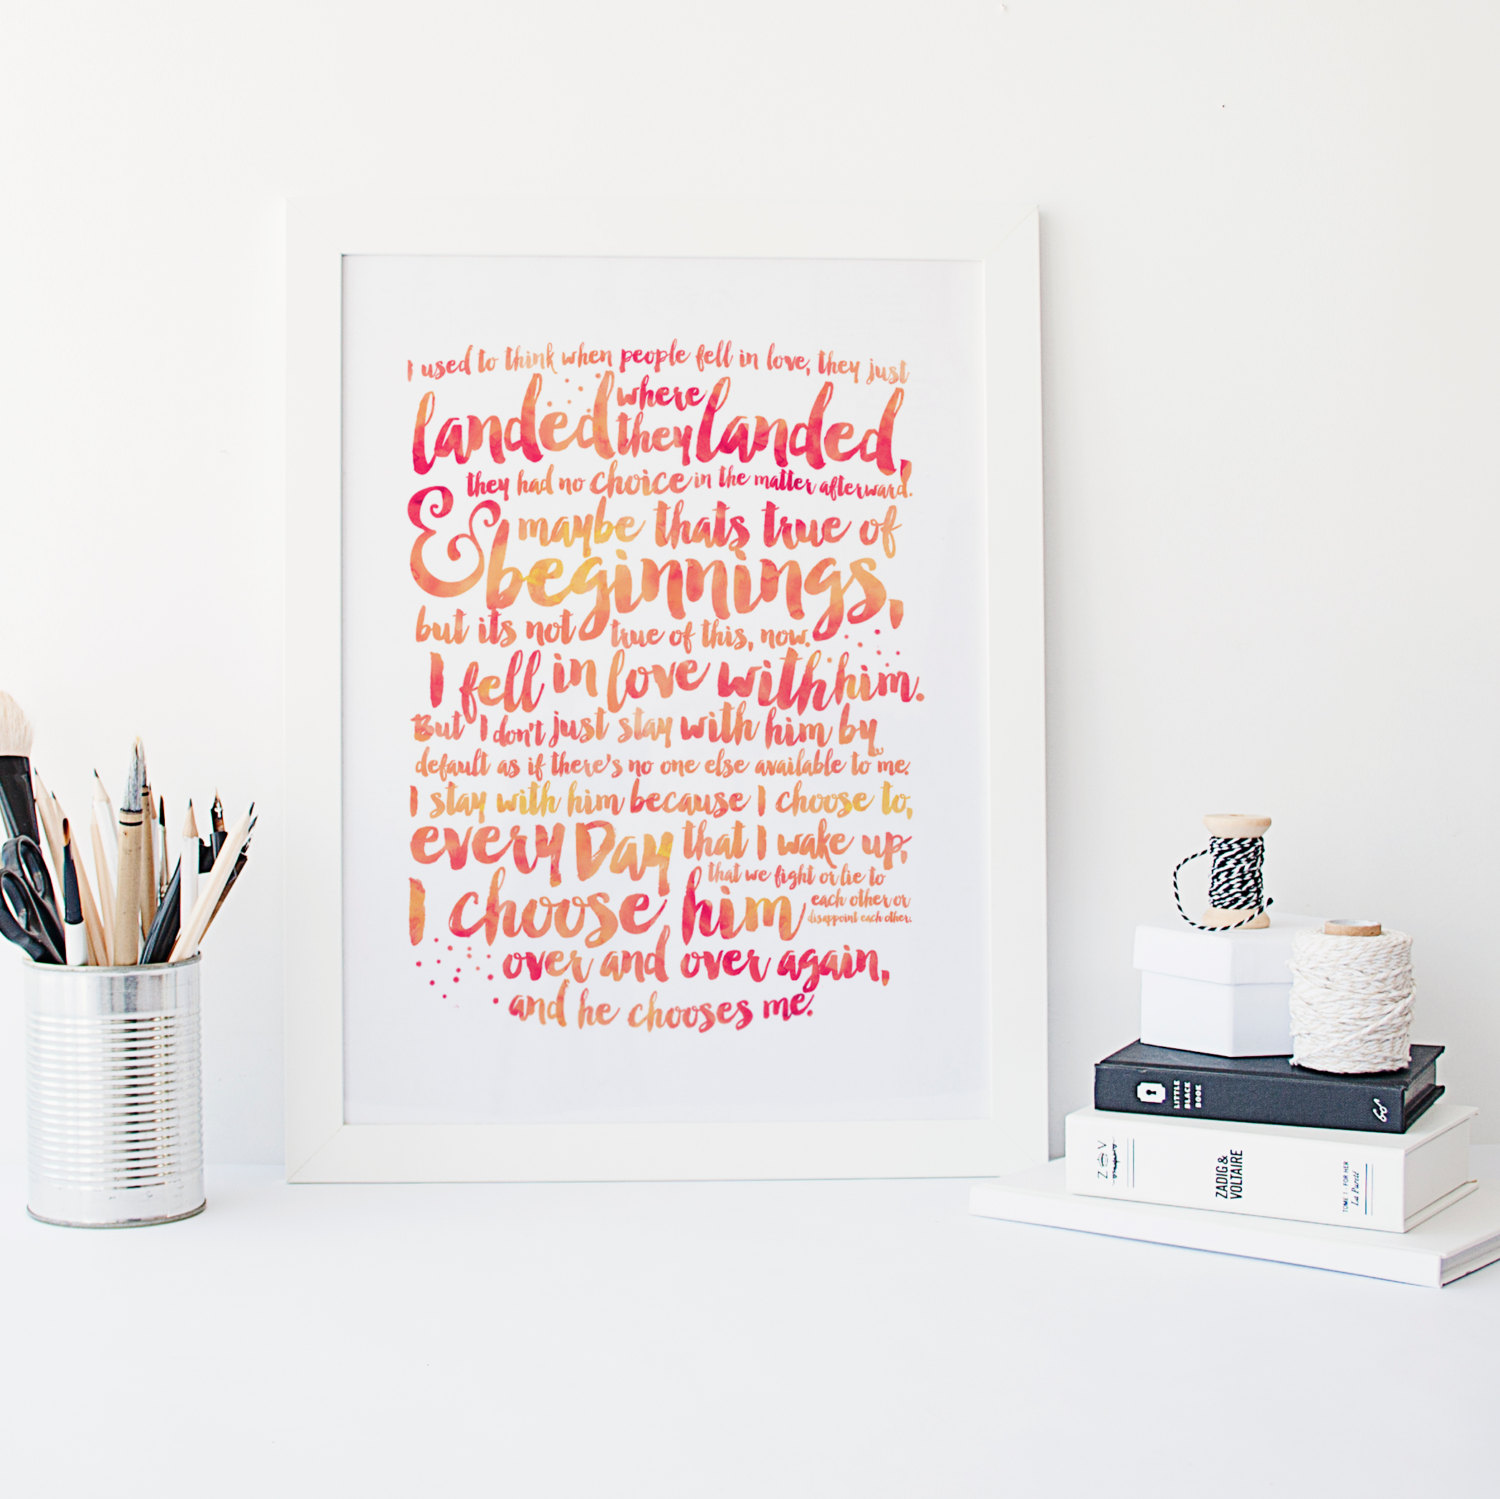 I used to think when people fell in love, they just
landed where they landed,
they had no choice in the matter afterward.
& maybe thats true of
beginnings,
but its not true of this, now.
I fell in love with him.
But I don't just stay with him by
default as if there's no one else available to me.
I stay with him because I choose to,
every Day that I wake up,
that we fight or lie to
each other or
disappoint each other.
I choose him
over and over again,
and he chooses me.
LITTLE
BLACK
BOOK
ZADIG &
VOLTAIRE
TOME 1 : FOR HER
La Pureté